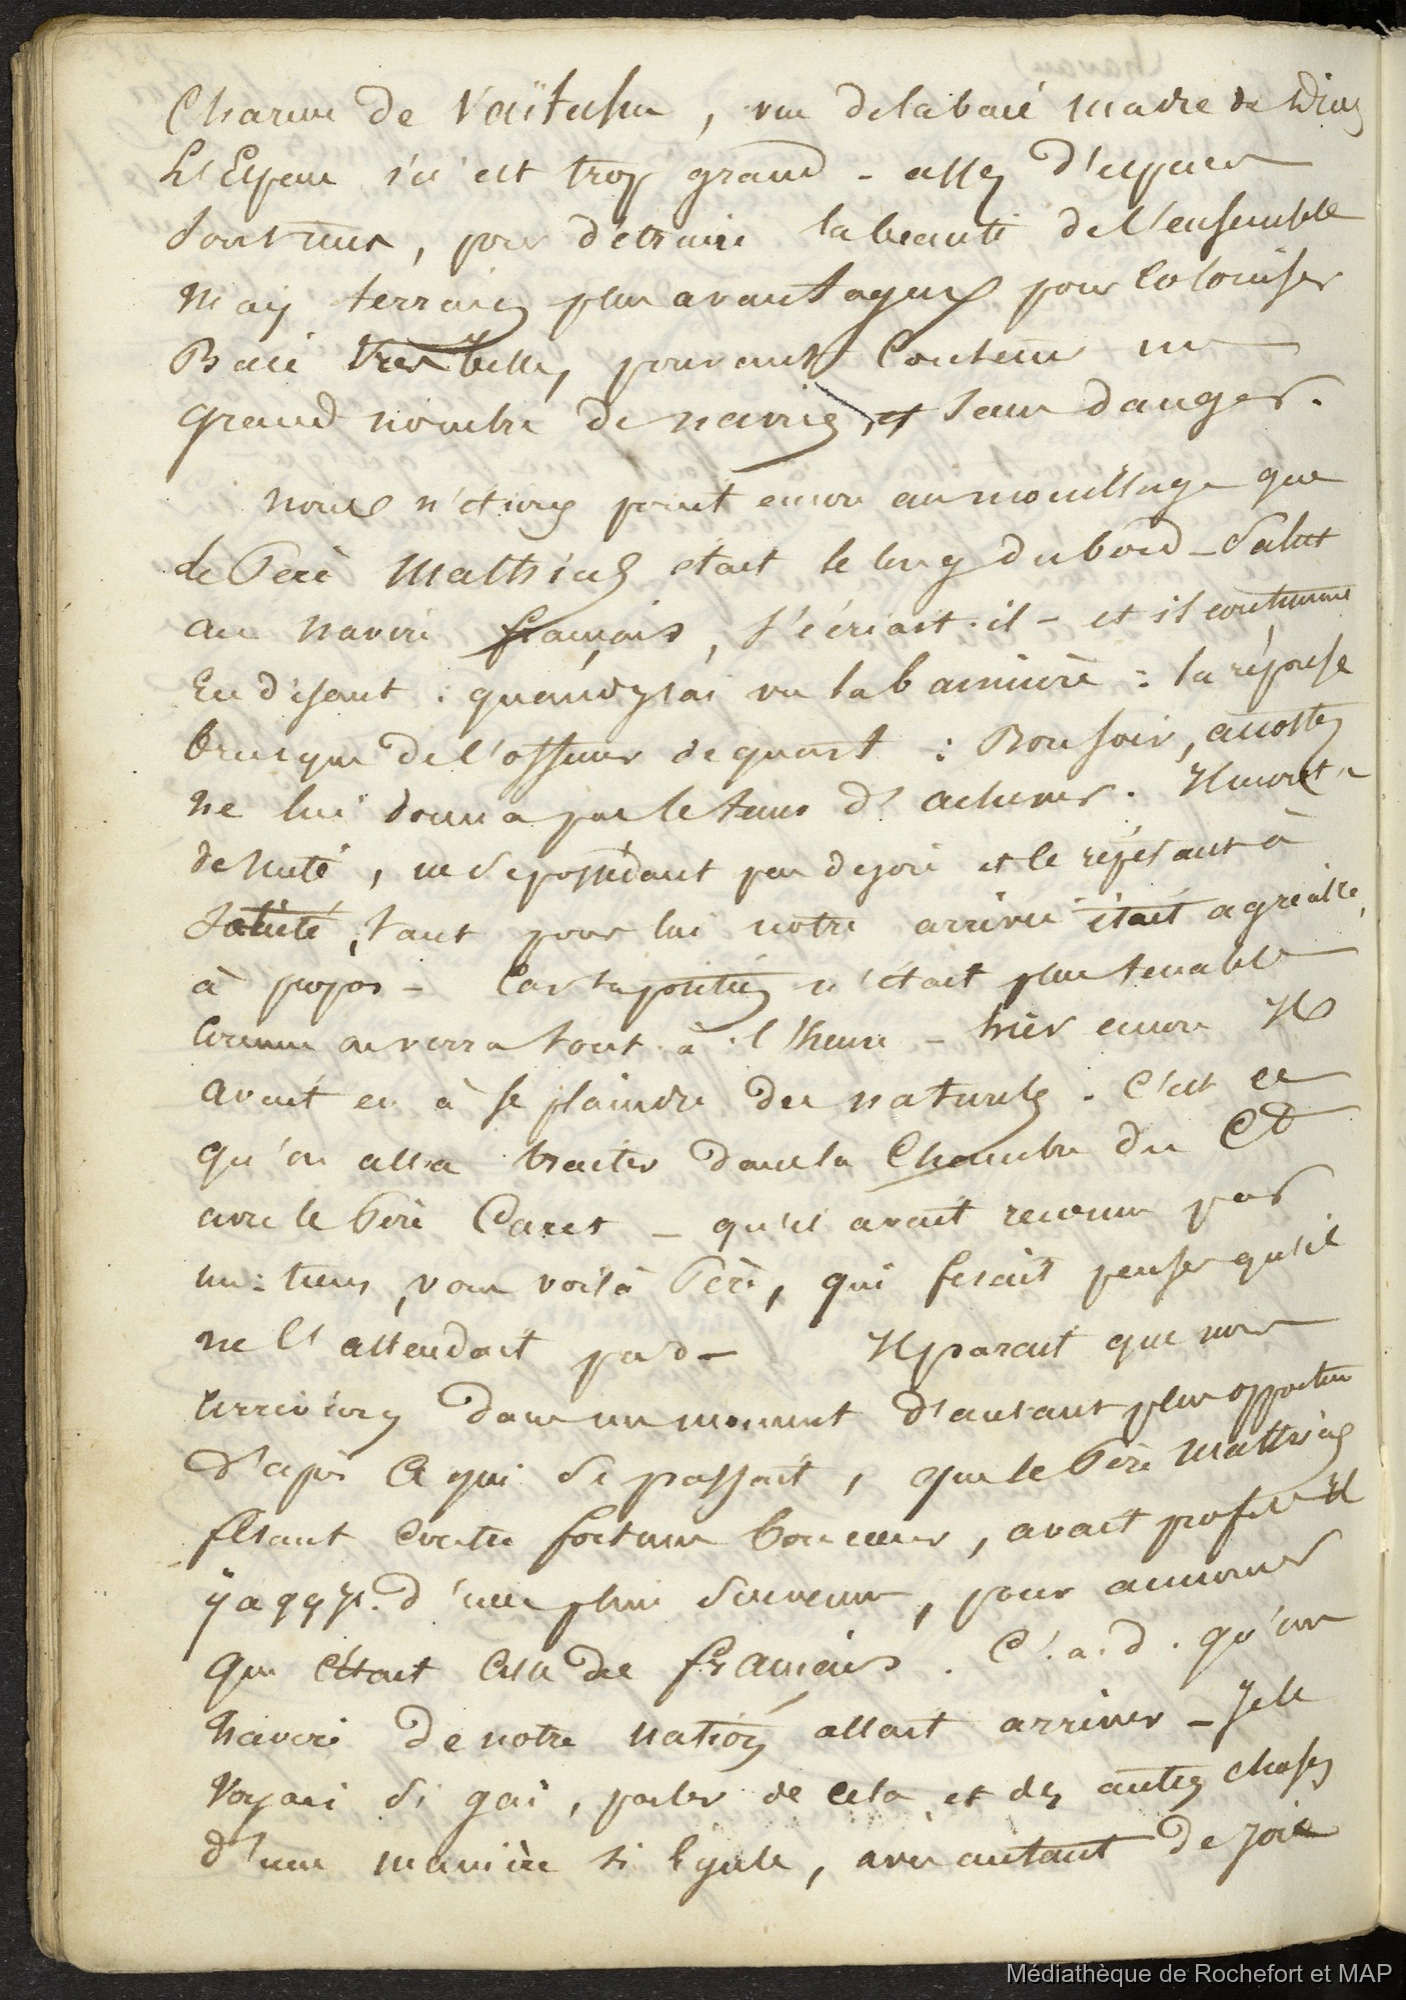 Charme de Vaïtahu, vu de la baie madre de Dios
L'Espace s'ici est trop grand - assez d'espaces
sont nus, pour détruire la beauté de l'ensemble
Mais terrain plus avantageux pour coloniser
Baie très belle, pouvant contenir un
grand nombre de navires, et sans danger.
Nous n'étions point encore au mouillage que
le Père Mathias était le long du bord - Salut
au navire français, s'écriait-il - et il continuait
En disant : quand j'ai vu la bannière : la réponse
brusque de l'officier de quart : Bonsoir, accostez
ne lui donna pas le tems d'achever. Il
, ne se possédant pas de joie et le répétant à
satiété, tant pour lui notre arrivée était agréable,
à propos - Car sa position n'était plus tenable
comme on verra tout à l'heure - hier encore Il
avait eu à se plaindre des naturels. C'est ce
qu'on alla traiter dans la Chambre du Ct
avec le Père Caret - qu'il avait reconnu par
un : tiens, vous voilà Père, qui fesait penser qu'il
ne l'attendait pas - Il parait que nous
arrivions dans un moment d'autant plus opportun
d'après ce qui se passait, que le Père Mathias
fesant contre fortune bon cœur, avait profité il
y a qq js. d'une pluie survenue, pour annoncer
que c'était celle des français. C'.a.d. qu'un
navire de notre nation allait arriver - Je le
voyais si gai, parler de cela et des autres choses
d'une manière si légale, avec autant de joie
Médiathèque de Rochefort et MAP